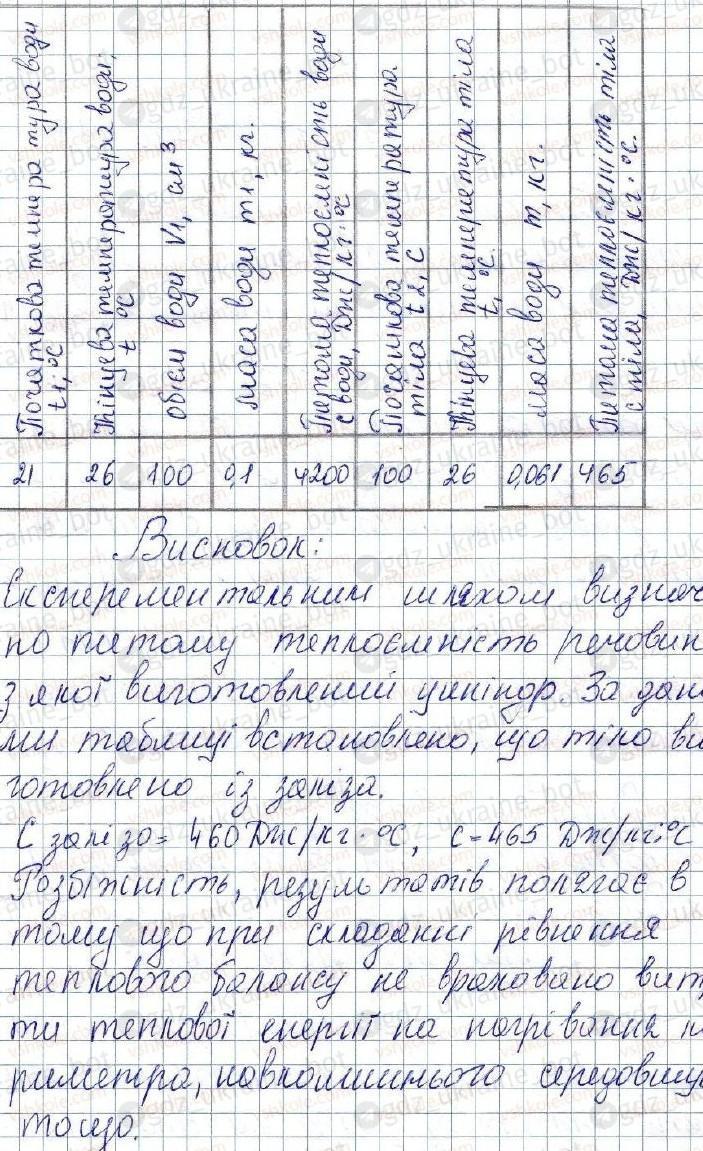 Початкова температура води
t1, °C
Кінцева температура води,
t °C
обєм води V1, см³
маса води m1, кг.
Питома теплоємність води
c води, Дж/кг·°C
Початкова температура
тіла t2, C
Кінцева температура тіла
t, °C
маса води m, кг.
Питома теплоємність тіла
c тіла, Дж/кг·°C.
21 26 100 0,1 4200 100 26 0,061 465
Висновок:
Експерементальним шляхом визнач
но питому теплоємність речовин
з якої виготовлений циліндр. За дани
ми таблиці встановлено, що тіло ви
готовлено із заліза.
C залізо = 460 Дж/кг·°C, c = 465 Дж/кг·°C
Розбіжність, результатів полягає в
тому що при складанні рівнення
теплового балансу не враховано вит
ти теплової енергії на нагрівання
риметра, навколишнього середовищ
тощо.